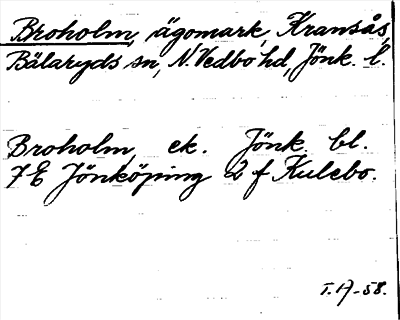 Broholm, ägomark, Kransås,
Bälaryds sn, N. Vedbo hd, Jönk. l.
Broholm, ek. Jönk. bl.
7 E Jönköping 2 f Kulebo.
T. H-58.